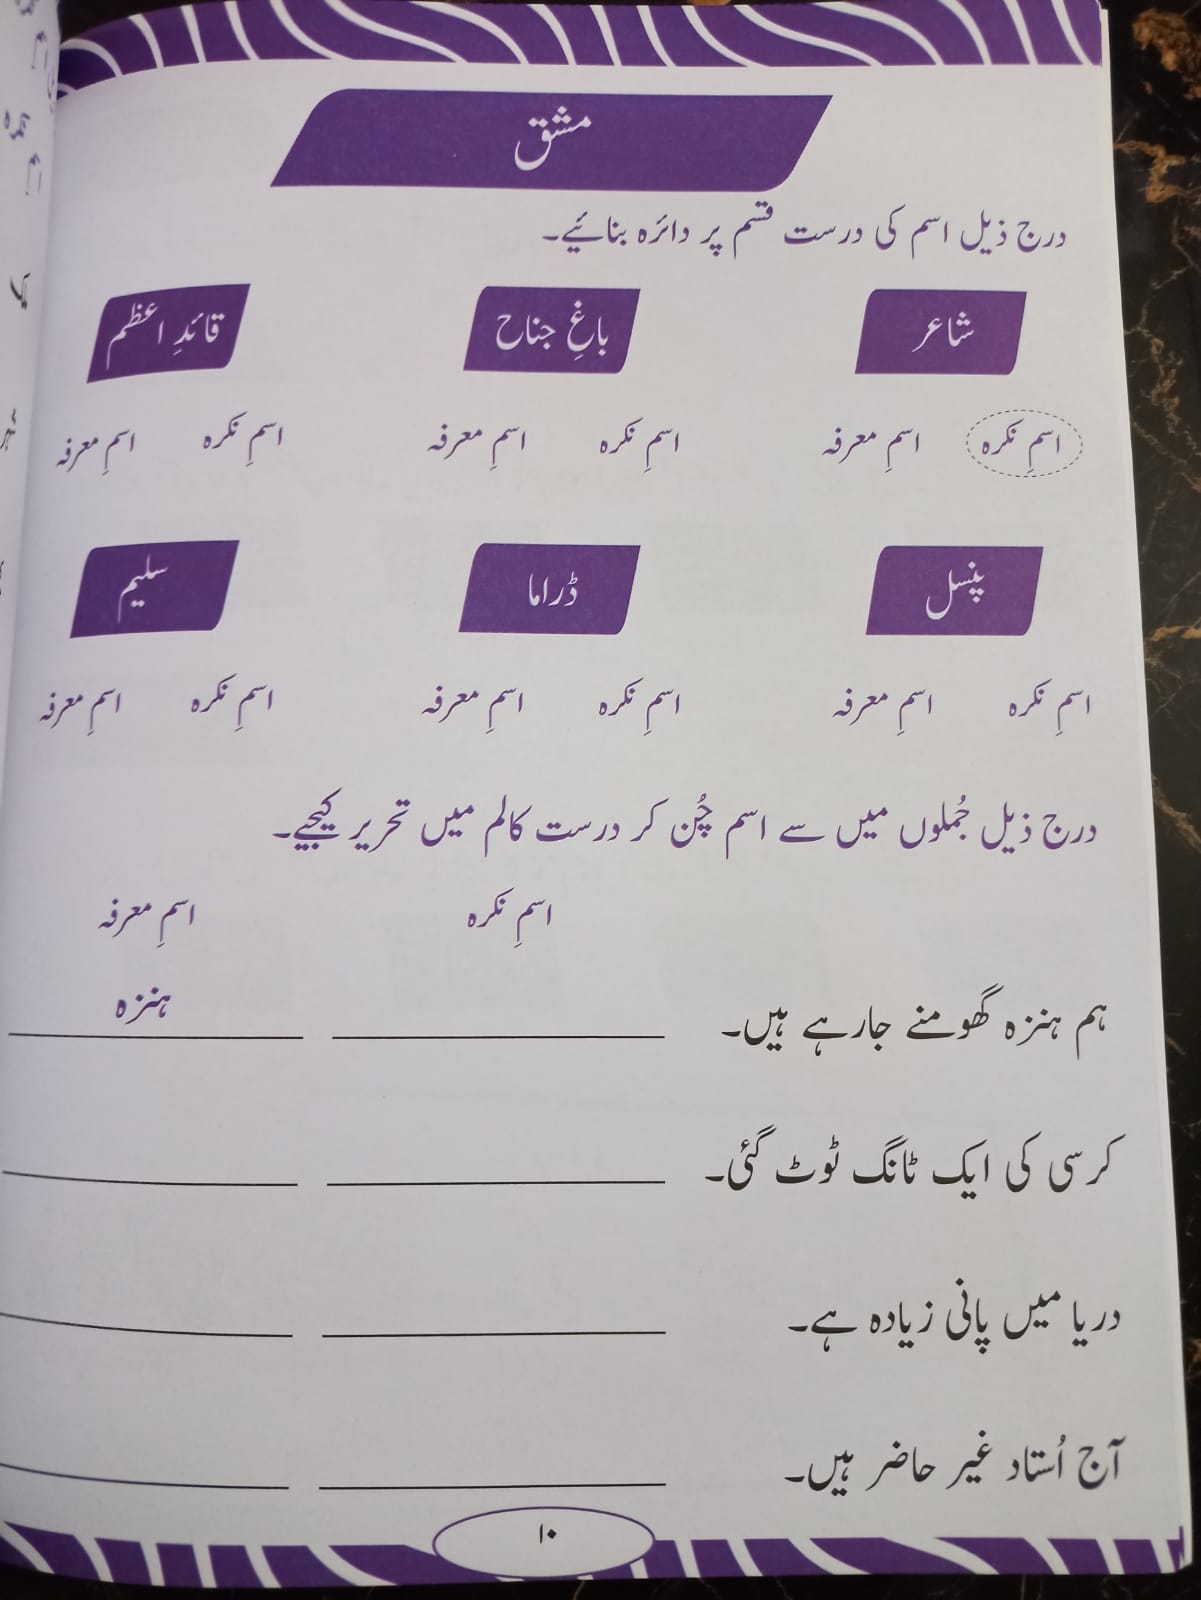 مشق
درج ذیل اسم کی درست قسم پر دائرہ بنائیے۔
شاعر باغِ جناح قائدِ اعظم
اسمِ نکرہ اسمِ معرفہ اسمِ نکرہ اسمِ معرفہ اسمِ نکرہ اسمِ معرفہ
پنسل ڈراما سلیم
اسمِ نکرہ اسمِ معرفہ اسمِ نکرہ اسمِ معرفہ اسمِ نکرہ اسمِ معرفہ
درج ذیل جُملوں میں سے اسم چُن کر درست کالم میں تحریر کیجیے۔
اسمِ نکرہ اسمِ معرفہ
ہم ہنزہ گھومنے جارہے ہیں۔ ہنزہ
کرسی کی ایک ٹانگ ٹوٹ گئی۔
دریا میں پانی زیادہ ہے۔
آج اُستاد غیر حاضر ہیں۔
۱۰